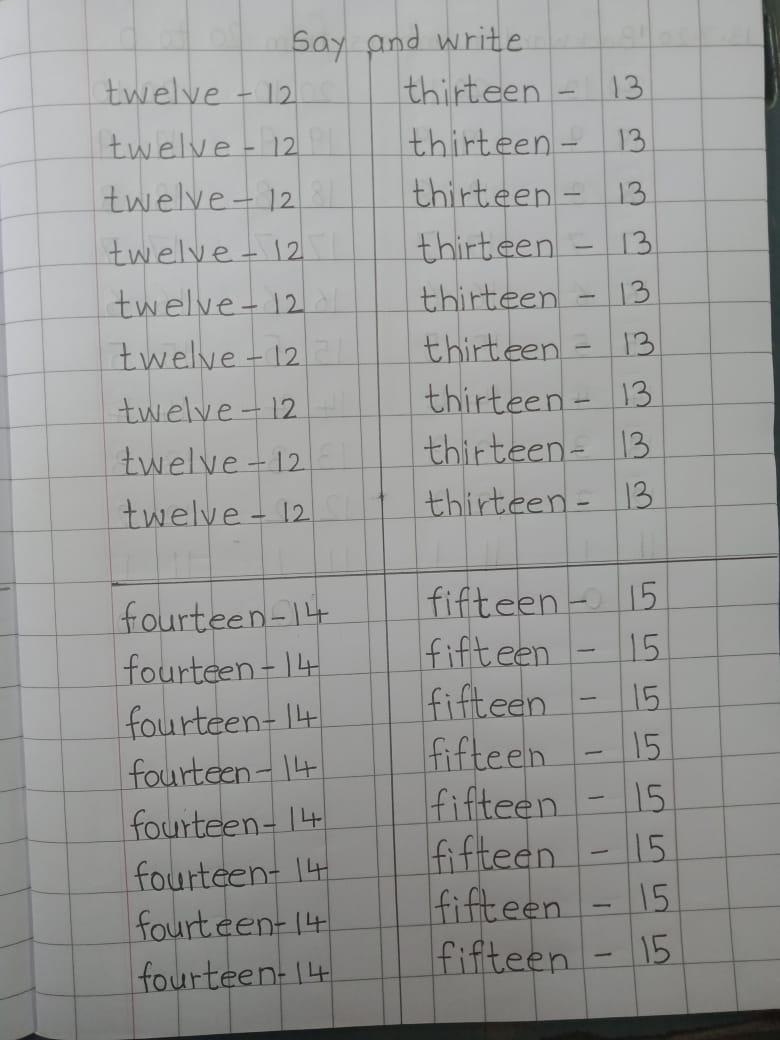 Say and write
twelve - 12 thirteen - 13
twelve - 12 thirteen - 13
twelve - 12 thirteen - 13
twelve - 12 thirteen - 13
twelve - 12 thirteen - 13
twelve - 12 thirteen - 13
twelve - 12 thirteen - 13
twelve - 12 thirteen - 13
twelve - 12 thirteen - 13
fourteen - 14 fifteen - 15
fourteen - 14 fifteen - 15
fourteen - 14 fifteen - 15
fourteen - 14 fifteen - 15
fourteen - 14 fifteen - 15
fourteen - 14 fifteen - 15
fourteen - 14 fifteen - 15
fourteen - 14 fifteen - 15